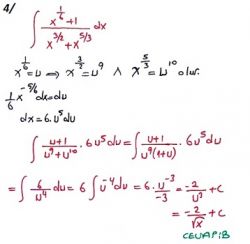 4/
∫ (x^(1/6)+1)/(x^(3/2)+x^(5/3)) dx
x^(1/6)=u ⟹ x^(3/2)=u^9 ∧ x^(5/3)=u^10 olur.
1/6 x^(-5/6) dx=du
dx=6.u^5 du
∫ (u+1)/(u^9+u^10) . 6u^5 du = ∫ (u+1)/(u^9(1+u)) . 6u^5 du
= ∫ 6/u^4 du = 6∫u^-4 du = 6. u^-3/-3 = -2/u^3 + c
= -2/√x + c
CEVAP: B